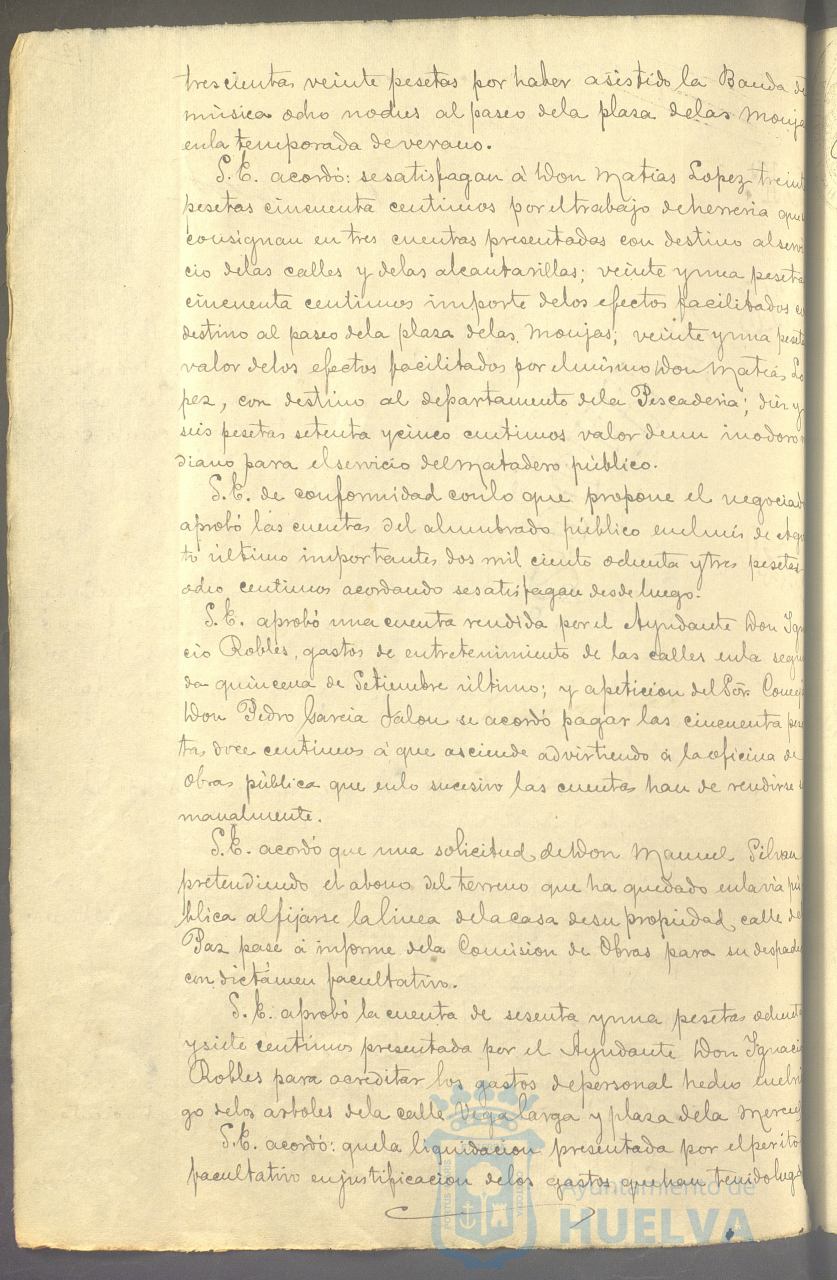 trescientas veinte pesetas por haber asistido la Banda de
música ocho noches al paseo dela plaza delas Monja
enla temporada de verano.
S.E. acordó: sesatisfagan á Don Matias Lopez treint
pesetas cincuenta centimos por eltrabajo deherreria que
consignan en tres cuentas presentadas con destino alservi
cio delas calles y delas alcantarillas; veinte yuna peseta
cincuenta centimos importe delos efectos facilitados co
destino al paseo dela plaza delas Monjas; veinte yuna peset
valor delos efectos facilitados por elmismo Don Matias Lo
pez, con destino al departamento dela Pescaderia; diez y
seis pesetas setenta ycinco centimos valor deun inodoro
diano para elservicio delMatadero público.
S.E. de conformidad conlo que propone el negociad
aprobó las cuentas del alumbrado público enelmes de Agos
to último importantes dos mil ciento ochenta ytres pesetas
ocho centimos acordando sesatisfagan desde luego.
S.E. aprobó una cuenta rendida por el Ayudante Don Igna
cio Robles, gastos de entretenimiento de las calles enla segun
da quincena de Setiembre último; y apeticion del Sor. Concej
Don Pedro Garcia Jalon se acordó pagar las cincuenta pese
tas doce centimos á que asciende advirtiendo á la oficina de
Obras pública que enlo sucesivo las cuentas han de rendirse se
manalmente.
S.E. acordó que una solicitud de Don Manuel Silvan
pretendiendo el abono del terreno que ha quedado enlavia pú
blica alfijarse lalinea dela casa desu propiedad calle de
Paz pase á informe dela Comision de Obras para su despacho
con dictámen facultativo.
S.E. aprobó la cuenta de sesenta yuna pesetas ochenta
ysiete centimos presentada por el Ayudante Don Ignacio
Robles para acreditar los gastos depersonal hecho enelrie
go delos arboles dela calle Vega larga y plaza dela Merced
S.E. acordó: quela liquidacion presentada por elperito
facultativo enjustificacion delos gastos quehan tenidolug
Ayuntamiento de
HUELVA